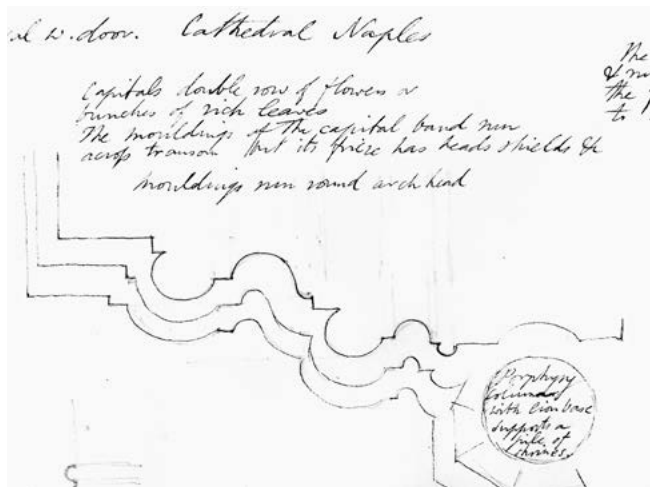 al w. door. Cathedral Naples
Capitals double row of flowers or
bunches of rich leaves
The mouldings of the capital band run
across transom but its frieze has heads shields &c
mouldings run round arch head
The
&
the
to
Porphyry
Columns
with lion base
supports a
pile of
shrines